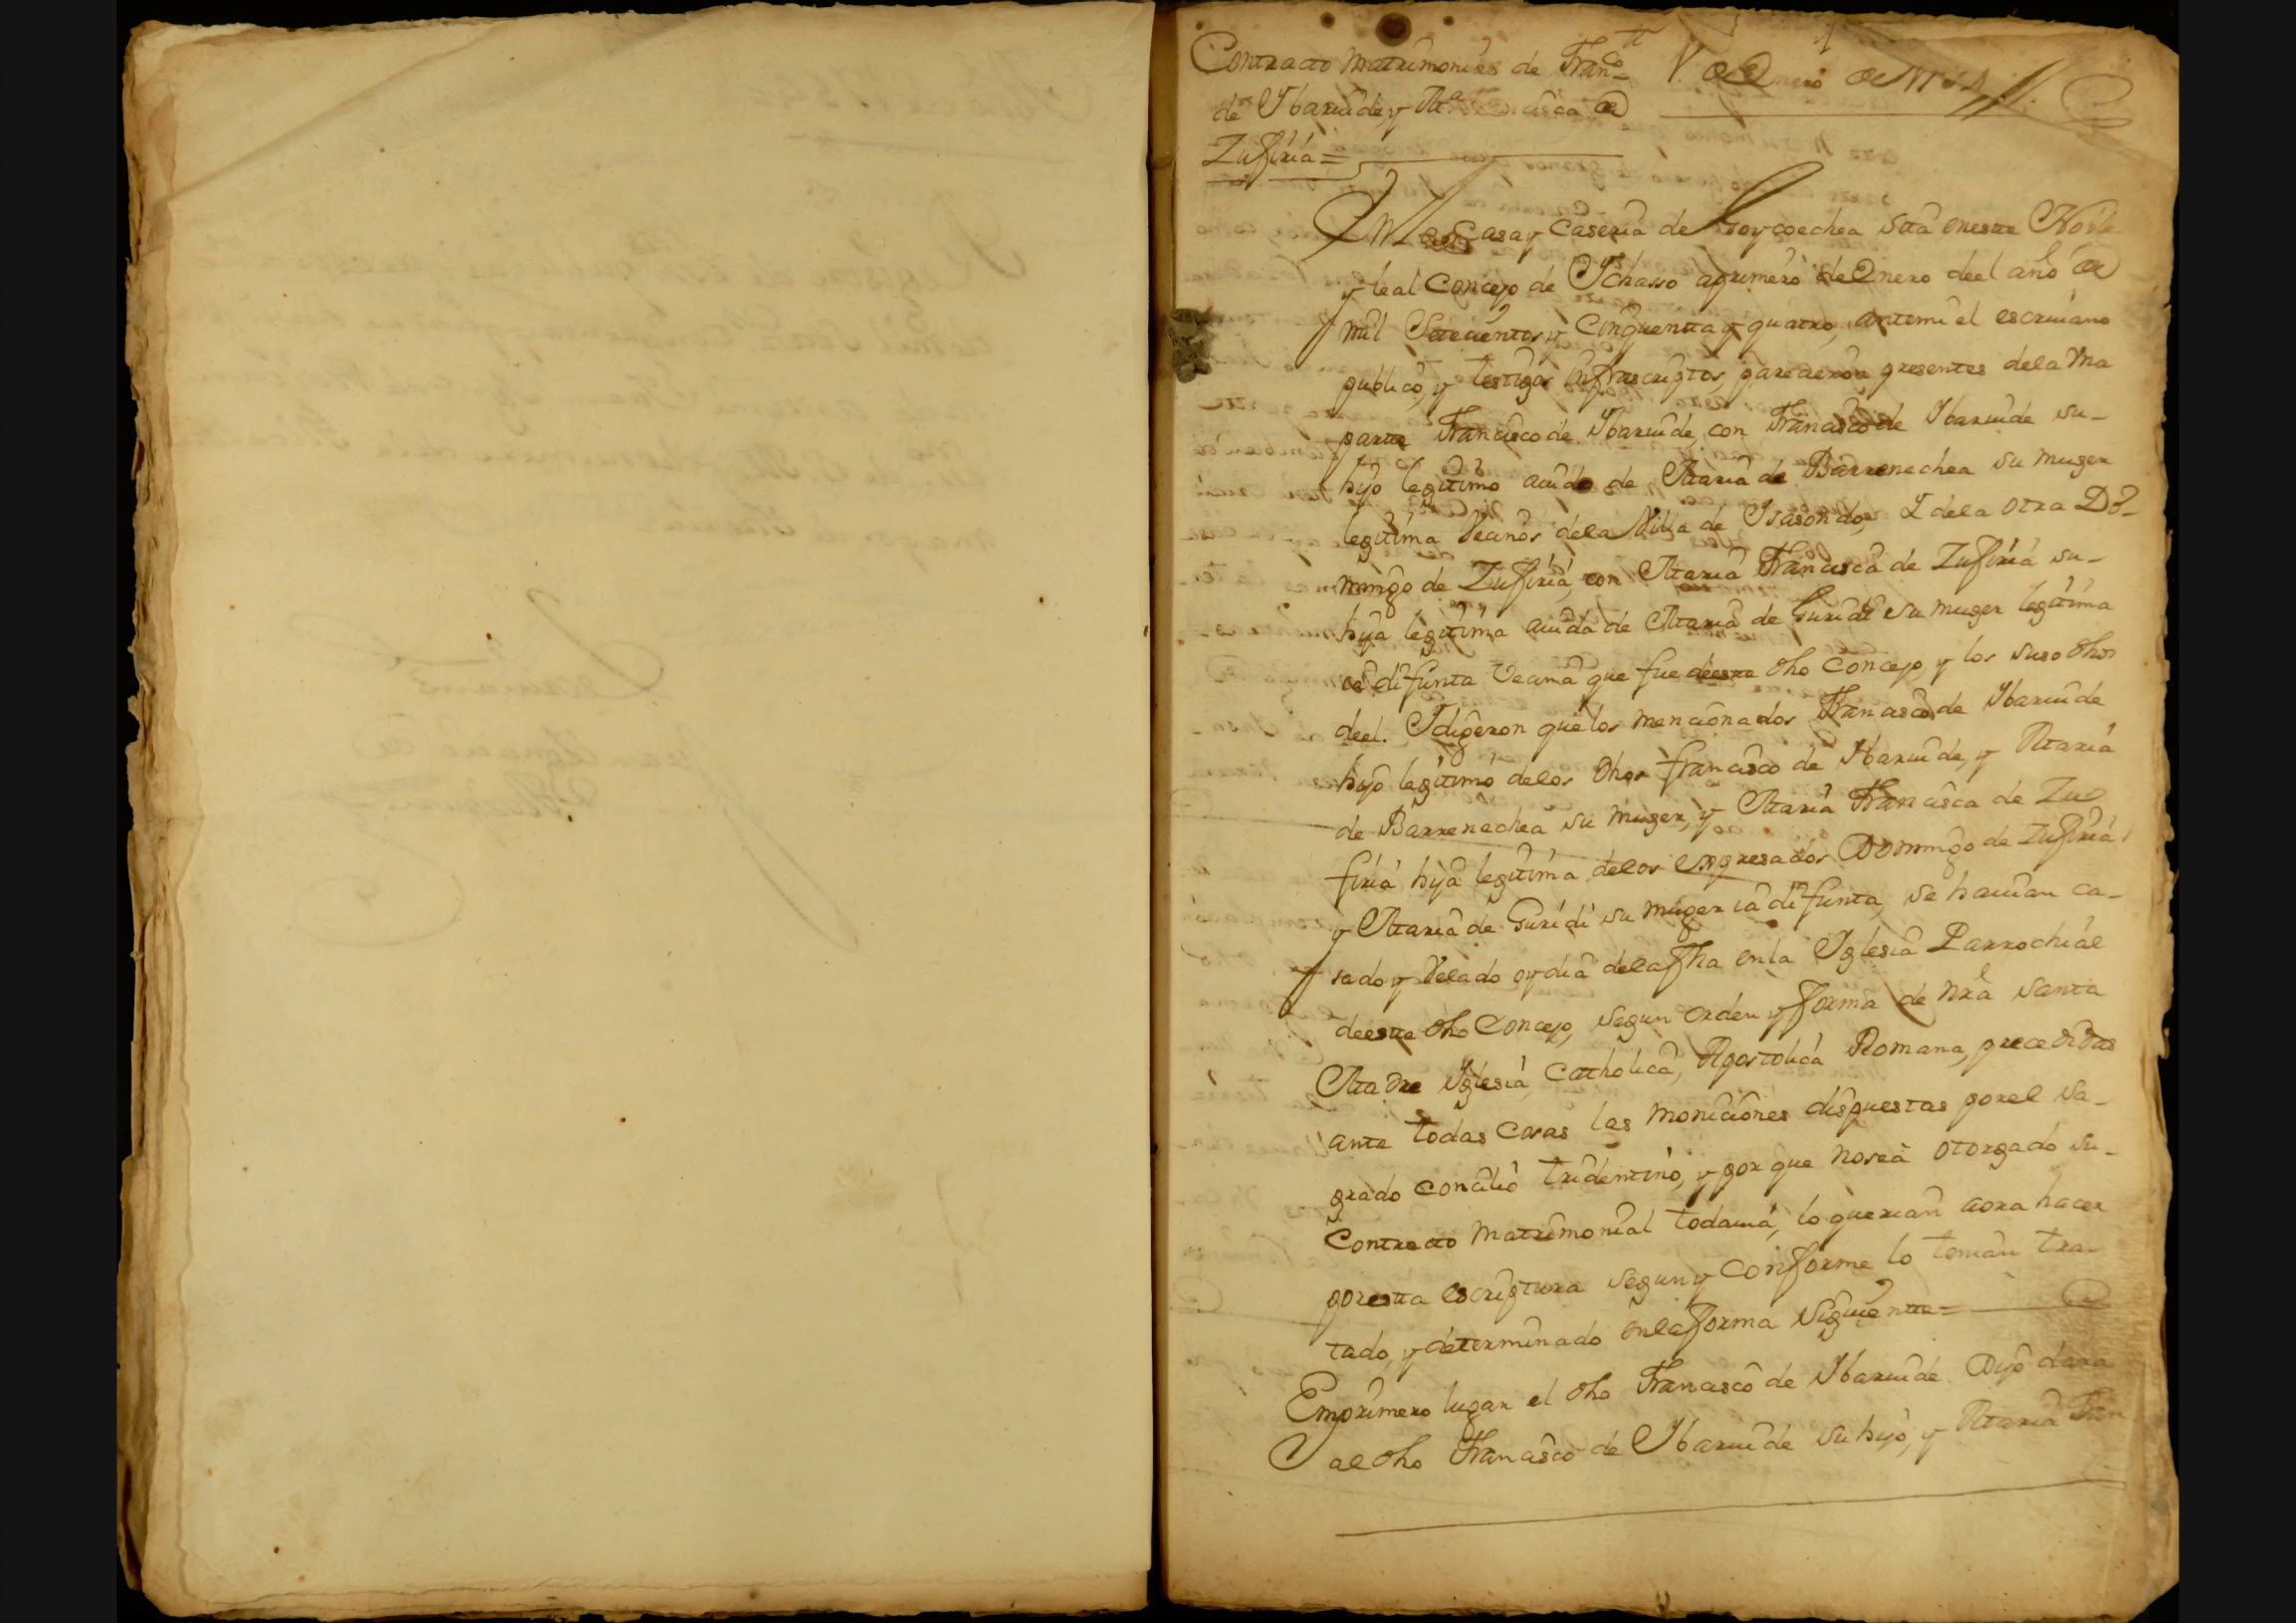 Contracto Matrimonial de Franco
de Ybarluide, y Ma Francisca de
Zufiria =
1 de Enero de 1754
En la Casa y Caseria de Goycoechea sita en este Noble
y leal Concejo de Ychasso a primero de Enero de el año de
mil Setecientos y Cinquenta y quatro, ante mi el escriuano
publico, y testigos infrascriptos, parecieron presentes de la vna
parte Francisco de Ybarluide, con Francisco de Ybarluide su
hijo legitimo auido de Maria de Barrenechea su muger
legitima Vecinos de la Villa de Ysasondo, I de la otra Do
mingo de Zufiria, con Maria Francisca de Zufiria su
hija legitima auida de Maria de Guridi su muger legitima
ia difunta Vecina que fue de este dho Concejo, y los suso dhos
de el. I digeron que los mencionados Francisco de Ybarluide
hijo legitimo de los dhos Francisco de Ybarluide, y Maria
de Barrenechea su muger, y Maria Francisca de Zu
firia hija legitima de los expresados Domingo de Zufiria
y Maria de Guridi su muger ia difunta, se hauian ca-
sado y Velado oy dia de la fha en la Yglesia Parrochial
de este dho Concejo, segun orden y forma de nra Santa
Madre Yglesia, Catholica, Apostolica Romana, precedidas
ante todas cosas las moniciones dispuestas por el Sa-
grado Concilio tridentino, y por que no se a otorgado su
Contracto Matrimonial todauia, lo querian aora hacer
por esta escriptura segun y conforme lo tenian tra-
tado, y determinado en la forma Siguiente =
Em primero lugar el dho Francisco de Ybarluide. Dijo dara
al dho Francisco de Ybarluide su hijo, y Maria Fran